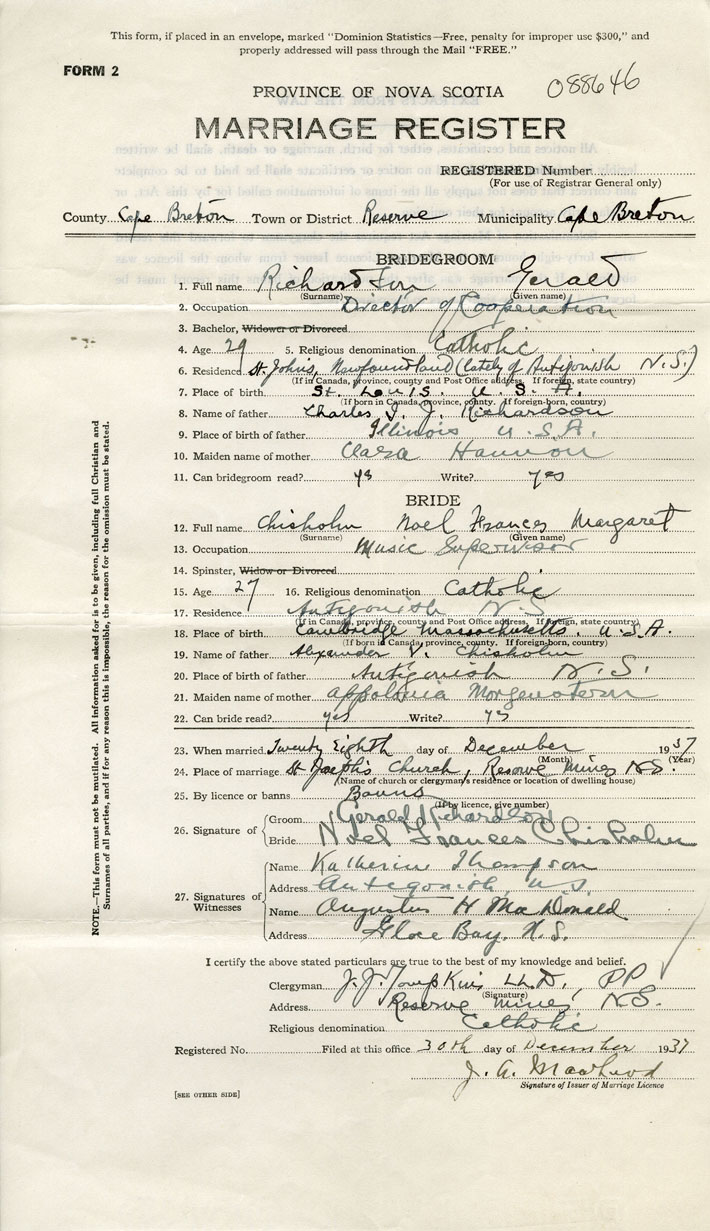 This form, if placed in an envelope, marked "Dominion Statistics—Free, penalty for improper use $300," and
properly addressed will pass through the Mail "FREE."
FORM 2
088646
PROVINCE OF NOVA SCOTIA
MARRIAGE REGISTER
REGISTERED Number
(For use of Registrar General only)
County Cape Breton Town or District Reserve Municipality Cape Breton
BRIDEGROOM
1. Full name Richardson Gerald
(Surname) (Given name)
2. Occupation Director of Cooperation
3. Bachelor, Widower or Divorced
4. Age 29 5. Religious denomination Catholic
6. Residence St. Johns, Newfoundland (lately of Antigonish N.S.)
(If in Canada, province, county and Post Office address. If foreign, state country)
7. Place of birth St. Louis. U.S.A.
(If born in Canada, province, county. If foreign-born, country)
8. Name of father Charles J. J. Richardson
9. Place of birth of father Illinois U.S.A.
10. Maiden name of mother Clara Hannon
11. Can bridegroom read? yes Write? yes
BRIDE
12. Full name Chisholm Noel Frances Margaret
(Surname) (Given name)
13. Occupation Music Supervisor
14. Spinster, Widow or Divorced
15. Age 27 16. Religious denomination Catholic
17. Residence Antigonish N.S
(If in Canada, province, county and Post Office address. If foreign, state country)
18. Place of birth Cambridge Massachusetts. U.S.A.
(If born in Canada, province, county. If foreign-born, country)
19. Name of father Alexander V. Chisholm
20. Place of birth of father Antigonish N.S.
21. Maiden name of mother Appolonia Morgenstern
22. Can bride read? yes Write? yes
23. When married Twenty Eighth day of December 1937
(Month) (Year)
24. Place of marriage St Joseph's Church, Reserve Mines N.S.
(Name of church or clergyman's residence or location of dwelling house)
25. By licence or banns Banns
(If by licence, give number)
26. Signature of Groom Gerald Richardson
Bride Noel Frances Chisholm
27. Signatures of Witnesses Name Katherine Thompson
Address Antigonish, N.S.
Name Augustus H MacDonald
Address Glace Bay. N.S.
I certify the above stated particulars are true to the best of my knowledge and belief.
Clergyman J.J. Tompkins LL.D., PP
(Signature)
Address Reserve Mines N.S.
Religious denomination Catholic
Registered No. Filed at this office 30th day of December 1937
J. A. MacLeod
Signature of Issuer of Marriage Licence
[SEE OTHER SIDE]
NOTE.—This form must not be mutilated. All information asked for is to be given, including full Christian and
Surnames of all parties, and if for any reason this is impossible, the reason for the omission must be stated.